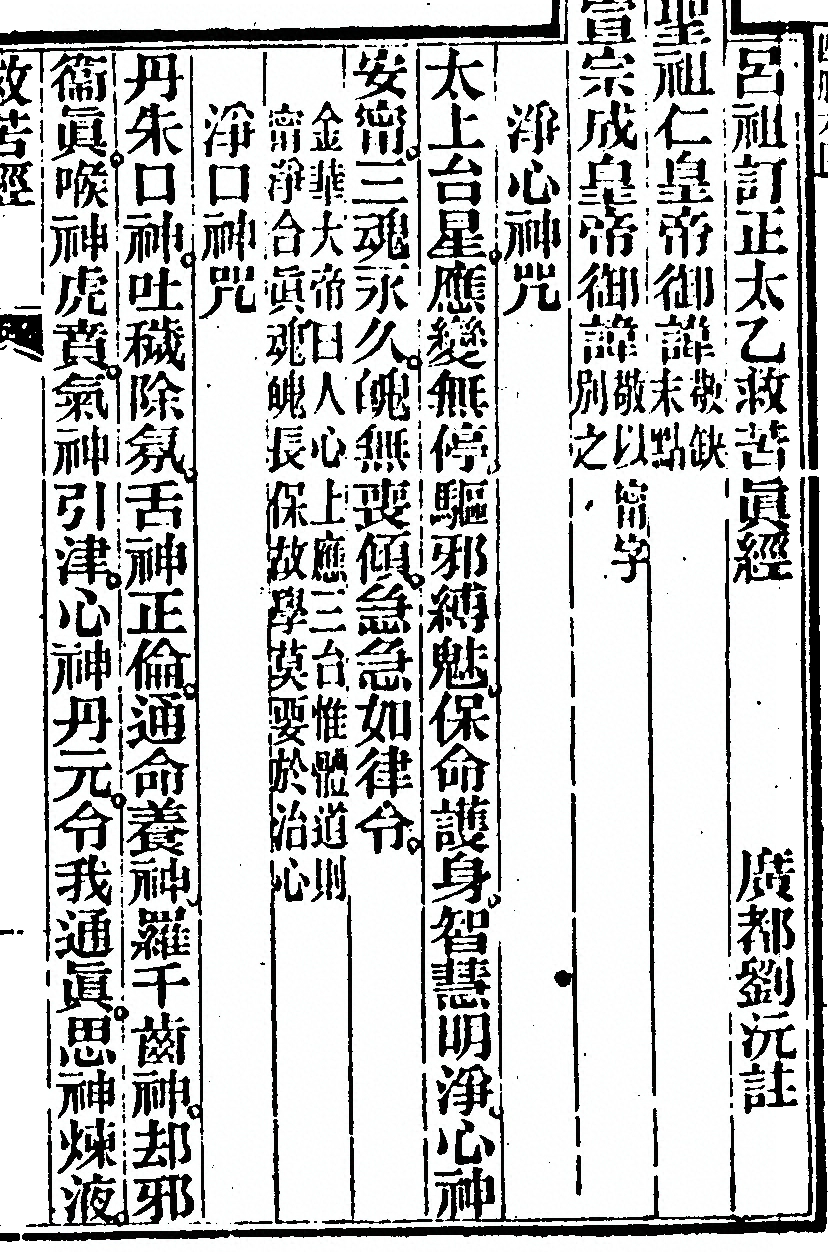 呂祖訂正太乙救苦眞經　廣都劉沅註
聖祖仁皇帝御諱敬缺末點
宣宗成皇帝御諱敬以甯字別之
淨心神咒
太上台星。應變無停。驅邪縛魅。保命護身。智慧明淨。心神
安甯。三魂永久。魄無喪傾。急急如律令。
金華大帝曰人心上應三台惟體道則
甯淨合眞魂魄長保故學莫要於治心
淨口神咒
丹朱口神。吐穢除氛。舌神正倫。通命養神。羅千齒神。却邪
衞眞。喉神虎賁。氣神引津。心神丹元。令我通眞。思神煉液。
救苦經